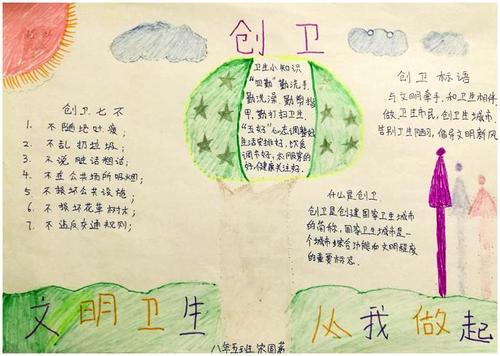 创卫
创卫七不
1. 不随地吐痰；
2. 不乱扔垃圾；
3. 不说脏话粗话；
4. 不在公共场所吸烟；
5. 不损坏公共设施；
6. 不损坏花草树木；
7. 不违反交通规则；
卫生小知识
"四勤"勤洗手，
勤洗澡，勤剪指
甲，勤打扫卫生，
"五好"心态调整好
生活安排好，饮食
调节好，衣用察的
好，健康关注好。
创卫标语
与文明牵手，和卫生相伴
做卫生市民，创卫生城市
告别卫生陋习，倡导文明新风
什么是创卫
创卫是创建国家卫生城市
的简称，国家卫生城市是一
个城市综合功能和文明程度
的重要标志。
文明卫生 从我做起
八年五班